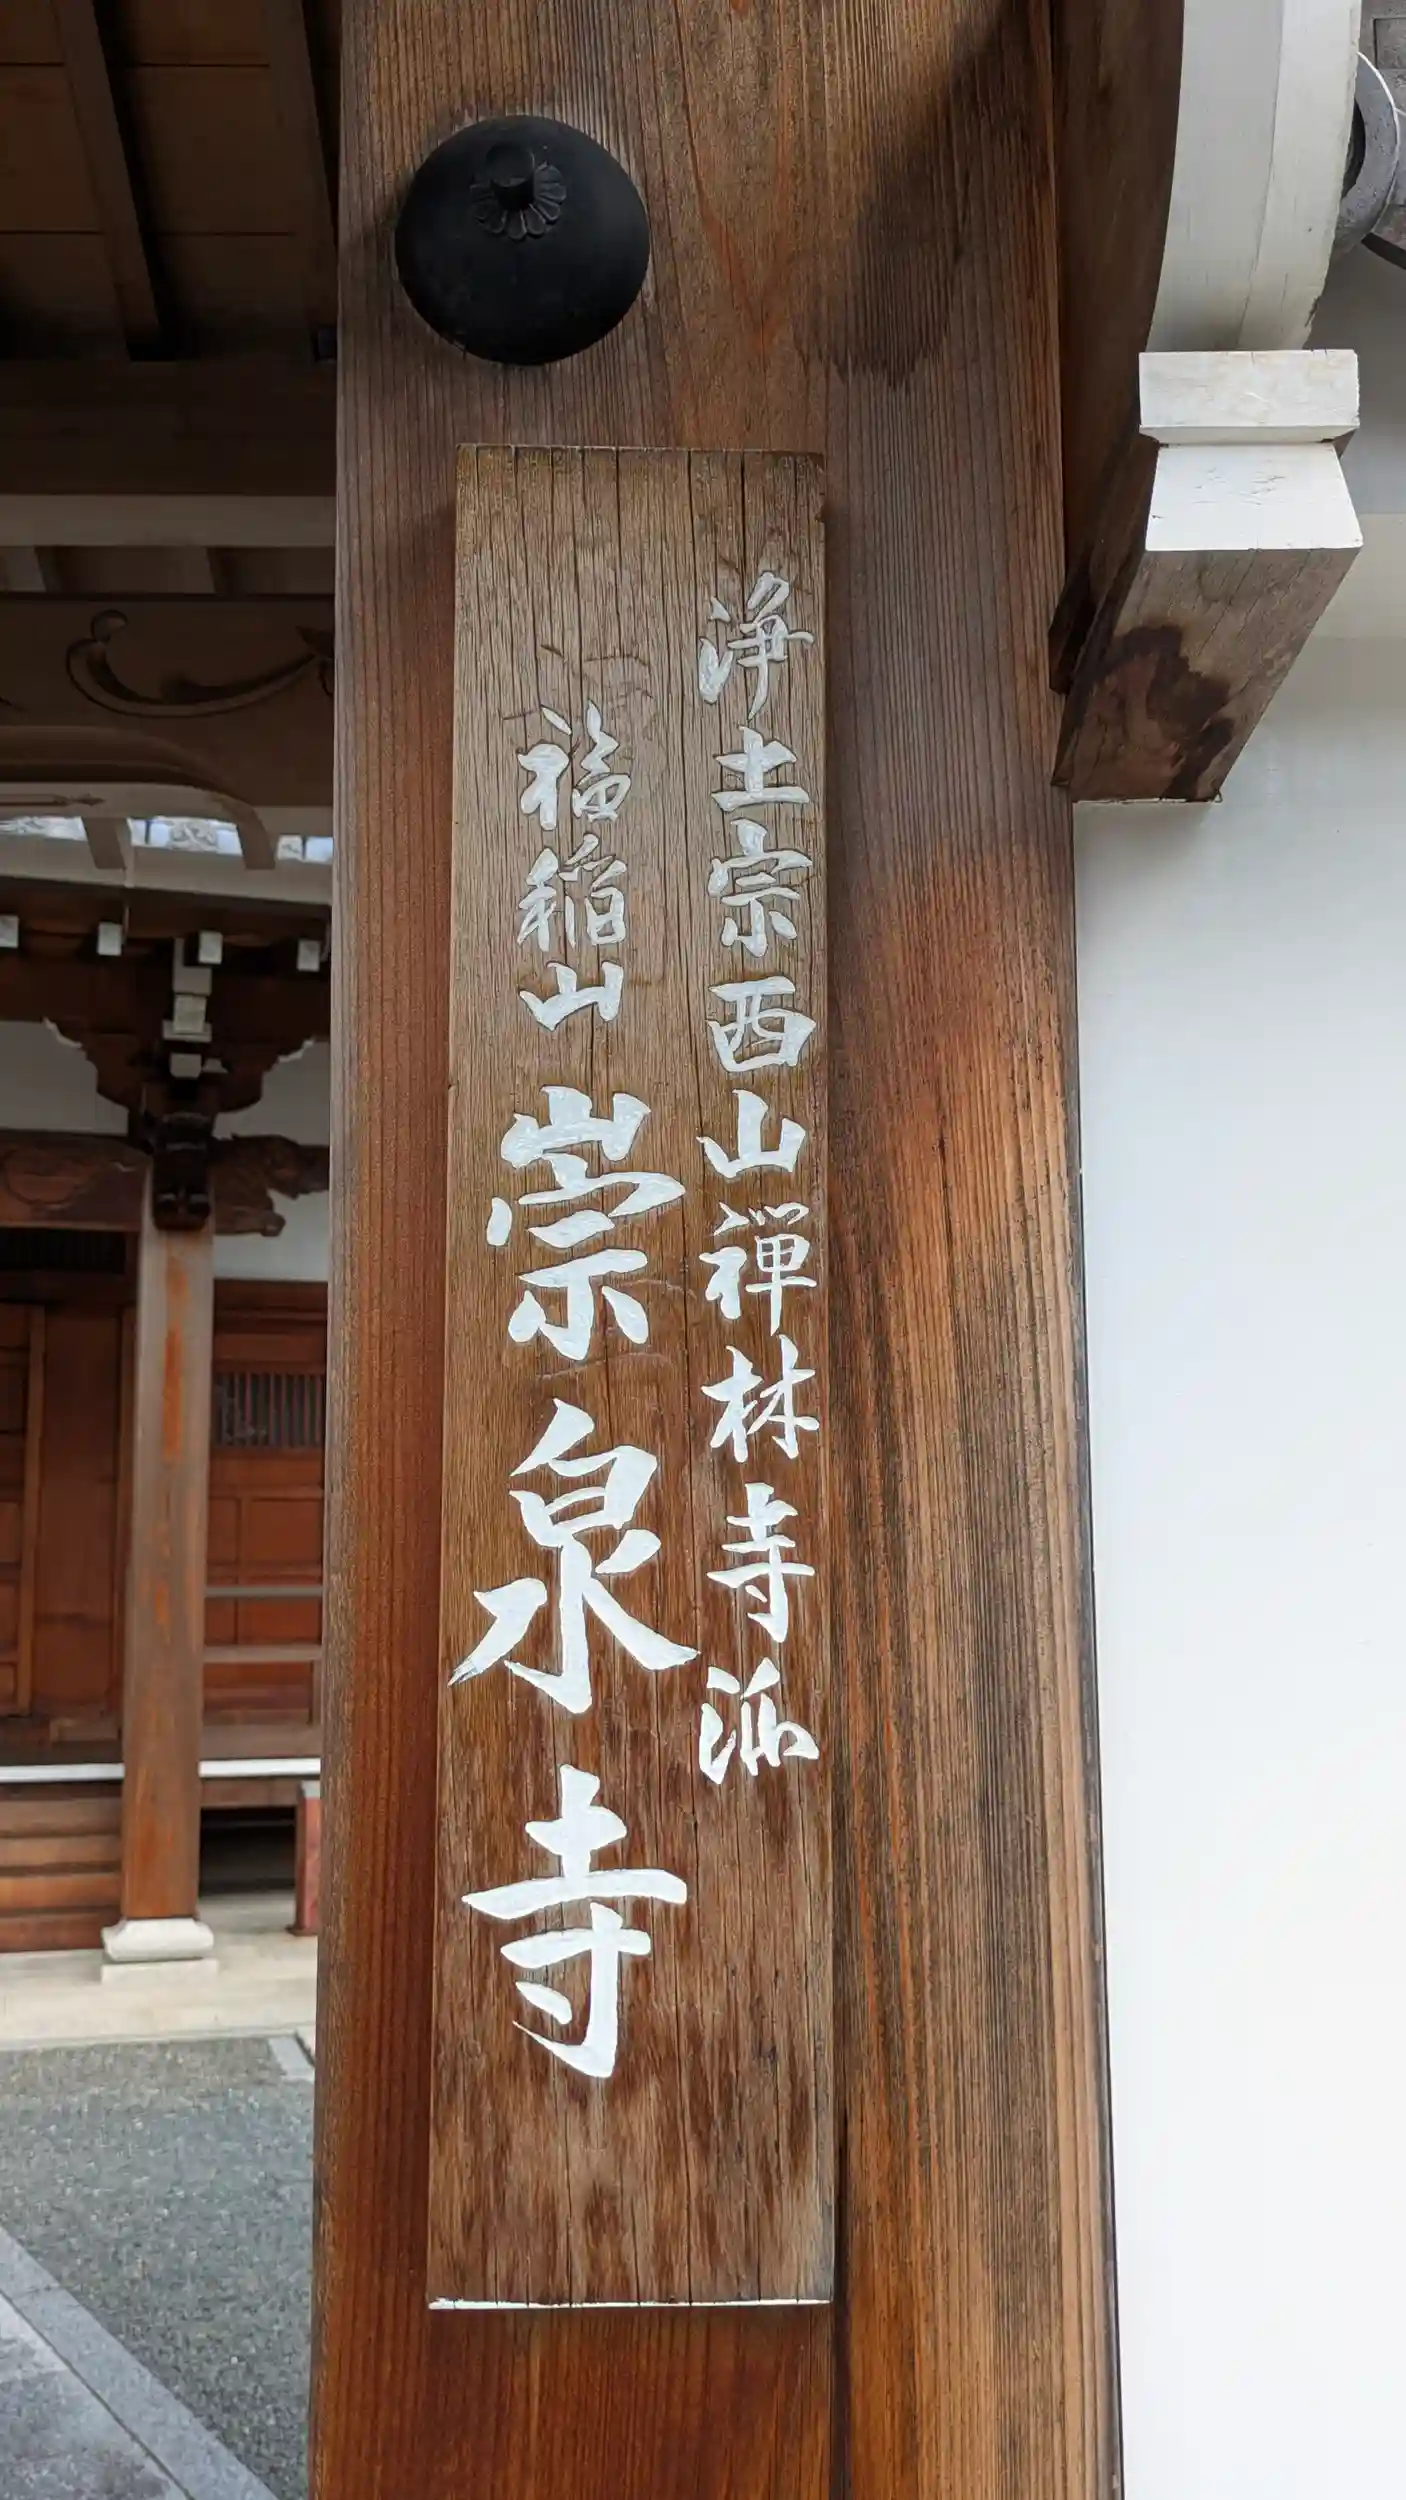 浄土宗西山禅林寺派
福稲山 崇泉寺